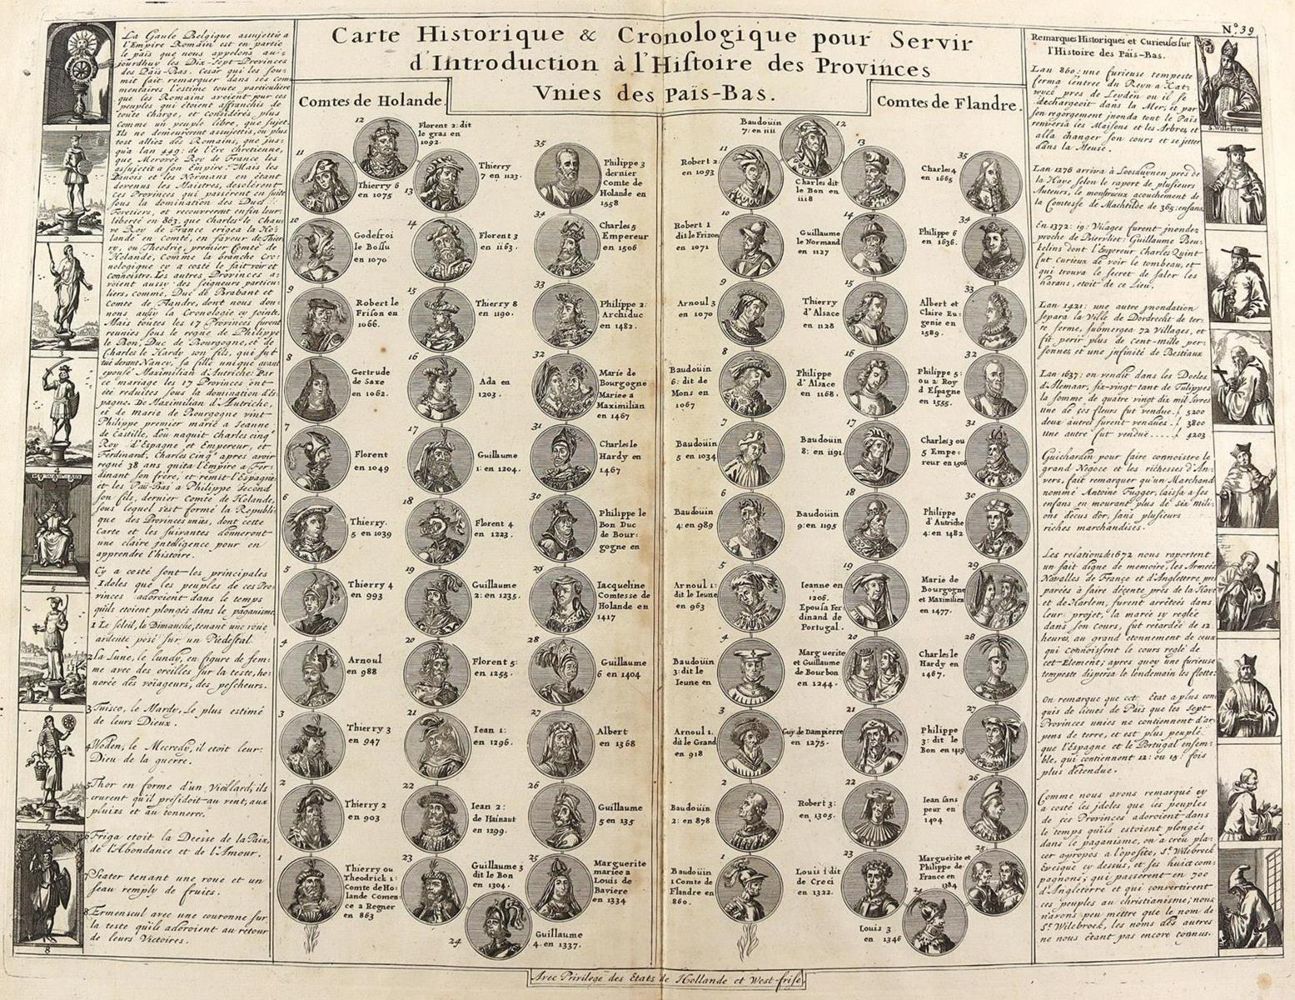 N.º 39
Carte Historique & Cronologique pour Servir
d'Introduction à l'Histoire des Provinces
Vnies des Païs-Bas.
Comtes de Holande.
Comtes de Flandre.
La Gaule Belgique assujettie a
l'Empire Romain est en partie
le païs que nous appelons au-
jourdhuy les Dix-Sept Provinces
des Païs-Bas. Cesar qui les sou-
mit fait remarquer dans ses com
mentaires l'estime toute particuliere
que les Romains avoient pour ces
peuples qui étoient affranchis de
toute charge, et considerés plus
comme un peuple libre, que sujet.
Ils ne demeurerent assujettis, ou plus
tost alliez des Romains, que jus-
qu'a lan 449: de l'ere chretienne,
que Merovée Roy de France les
assujetit a son Empire. Mais les
Danois et les Normans en étant
devenus les Maistres, desolerent
ces Provinces qui passerent en suite
sous la domination des Duc
Foretiers, et recouvrerent enfin leur
liberté en 863, que Charles le Chau
ve Roy de France erigea la Ho-
lande en comté, en faveur de Thier
ry, ou Theodore premier Comte de
Holande, comme la branche Cro-
nologique cy a costé le fait voir et
connoistre. Les autres Provinces a-
voient aussi des seigneurs particu-
liers, comme, Duc de Brabant et
Comte de Flandre, dont nous don-
nons aussy la Cronologie cy jointe.
Mais toutes les 17 Provinces furent
reunies sous le regne de Philippe
le Bon, Duc de Bourgogne, et de
Charles le Hardy son fils, qui fut
tué devant Nancy, sa fille unique ayant
epousé Maximilian d'Autriche. Par
ce mariage les 17 Provinces ont
eté reduites sous la domination d'Es
pagne. De Maximilian d'Autriche,
et de marie de Bourgogne vint
Philippe premier marié a Jeanne
de Castille, dou naquit Charles cinq
Roy d'Espagne et Empereur, et
Ferdinand, Charles Cinq apres avoir
regné 38 ans quita l'Empire a Fer-
dinant son frere, et remit l'Espagne
et les Paï-Bas a Philippe Second
son fils, dernier Comte de Holande,
sous lequel s'est formé la Republi
que des Provinces unies, dont cette
Carte et les suivantes donneront
une claire intelligence pour en
apprendre l'histoire.
Cy a costé sont les principales
Idoles que les peuples de ces Pro-
vinces adoroient dans le temps
qu'ils etoient plongés dans le paganisme
1 Le Soleil, le Dimanche, tenant une roüe
ardente posé sur un Piedestal
2 La Lune, le lundy, en figure de fem-
me avec des oreilles sur la teste, ho-
norée des voiageurs, des pescheurs.
3 Tuisco, le Mardy, le plus estimé
de leurs Dieux.
4 Woden, le Mecredy, il etoit leur
Dieu de la guerre.
5 Thor en forme d'un vieillard, ils
crurent qu'il présidoit au vent, aux
pluies et au tonnerre.
6 Friga etoit la Deesse de la Paix,
de l'Abondance et de l'Amour.
Seater tenant une roue et un
seau remply de fruits.
8 Ermensul avec une couronne sur
la teste qu'ils adoroient au retour
de leurs Victoires.
1
2
3
4
5
6
7
8
11
12
Thierry 6
en 1075
Florent 2: dit
le gras en
1092
13
Thierry
7 en 1123.
10
Godefroi
le Bossu
en 1070
14
Florent 3
en 1163.
9
Robert le
Frison en
1066.
15
Thierry 8
en 1190.
8
Gertrude
de Saxe
en 1062.
16
Ada en
1203.
7
Florent
en 1049
17
Guillaume
1: en 1204.
6
Thierry.
5 en 1039
18
Florent 4
en 1223.
5
Thierry 4
en 993
19
Guillaume
2: en 1235.
4
Arnoul
en 988
20
Florent 5:
en 1255.
3
Thierry 3
en 947
21
Iean 1:
en 1296.
2
Thierry 2
en 903
22
Iean 2:
de Hainaut
en 1299.
1
Thierry ou
Theodrick 1:
Comte de Ho:
lande Comen
ce a Regner
en 863
23
Guillaume 3
dit le Bon
en 1304.
24
Guillaume
4. en 1337.
25
Marguerite
mariée a
Louis de
Baviere
en 1334
26
Guillaume
5 en 135
27
Albert
en 1368
28
Guillaume
6 en 1404
29
Iacqueline
Comtesse de
Holande en
1417
30
Philippe le
Bon Duc
de Bour:
gogne en
31
Charles le
Hardy en
1467
32
Marie de
Bourgogne
Mariée a
Maximilian
en 1467
33
Philippe 2:
Archiduc
en 1482.
34
Charles 5
Empereur
en 1506
35
Philippe 3
dernier
Comte de
Holande en
1558
Baudoüin
7: en 1111
11
Robert 2
en 1093
12
Charles dit
le Bon en
1118
13
Robert 1
dit le Frizon
en 1071
10
Guillaume
le Normand
en 1127
14
Arnoul 3
en 1070
9
Thierry
d'Alsace
en 1128
15
Baudoüin
6: dit de
Mons en
1067
8
Philippe
d'Alsace
en 1168.
16
Baudoüin
5 en 1034
7
Baudouin
8: en 1191
17
Baudouin
4: en 989
6
Baudouin
9: en 1195
18
Arnoul 1:
dit le Ieune
en 963
5
Ieanne en
1206.
Epousa Fer
dinand de
Portugal.
19
Baudouin
3: dit le
Ieune en
4
Marguerite
et Guillaume
de Bourbon
en 1244.
20
Arnoul 1.
dit le Grand
en 918
3
Guy de Dampierre
en 1275.
21
Baudouin
2: en 878
2
Robert 3:
en 1305.
22
Baudouin
1 Comte de
Flandre en
860.
1
Louis 1 dit
de Creci
en 1322.
23
Louis 3
en 1346
24
Marguerite et
Philippe de
France en
1384
25
Iean sans
peur en
1404
26
Philippe
3: dit le
Bon en 1419
27
Charles le
Hardy en
1467.
28
Marie de
Bourgogne
et Maximilien
en 1477.
29
Philippe
d'Autriche
4: en 1482
30
Charles 3 ou
5 Empe:
reur en 1506
31
Philippe 5:
ou 2: Roy
d'Espagne
en 1555.
32
Albert et
Claire Eu:
genie en
1589.
33
Philippe 6
en 1636.
34
Charles 4
en 1665
35
Remarques Historiques et Curieuses sur
l'Histoire des Païs-Bas.
Lan 860: une furieuse tempeste
ferma lentrée du Reyn a Kat:
wyck pres de Leyden ou il se
dechargeoit dans la Mer, et par
son regorgement inonda tout le Païs
renversa les Maisons et les Arbres, et
alla changer son cours et se jetter
dans la Meuse.
Lan 1276 arriva à Loesduynen pres de
la Haye selon le raport de plusieurs
Auteurs, le monstrueux acouchement de
la Comtesse de Machtilde de 365: enfans
en 1372: 19: Villages furent inondez
proche de Biervliet: Guillaume Beu-
kelins dont l'Empereur Charles Quint
fut curieux de voir le tombeau, et
qui trouva le secret de saler les
harans, etoit de ce Lieu.
Lan 1421: une autre ynondation
separa la Ville de Dordrecht de ter
re ferme, submergea 72 Villages, et
fit perir plus de cent-mille per-
sonnes et une infinité de Bestiaux
Lan 1637: on vendit dans les Doeles
d'Alcmaar, six-vingt tant de Tulippes
la somme de quatre vingt dix mil livres
une de ces fleurs fut vendue. f 5200
deux autres furent vendues. f 3800
une autre fut vendue f 4203
Guichardin pour faire connoistre le
grand Negoce et les richesses d'An-
vers, fait remarquer qu'un Marchand
nommé Antoine Fugger, laissa a ses
enfans en mourant plus de six mili-
ons decus dor, sans plusieurs
riches marchandises.
Les relations de 1672 nous raportent
un fait digne de memoire, les Armées
Navalles de France et d'Angleterre, pre
parées a faire décente près de la Haye
et de Harlem, furent arrêtées dans
leur projet, la marée sy reglée
dans son cours, fut retardée de 12
heures, au grand etonnement de ceux
qui connoissent le cours reglé de
cet Element; apres quoy une furieuse
tempeste dispersa le lendemain les flottes
On remarque que cet. Etat a plus con
quis de lieues de Païs que les Sept
Provinces unies ne contiennent d'ar
pens de terre, et est plus peuplé
que l'Espagne et le Portugal ensem-
ble, qui contiennent 12: ou 15: fois
plus détendue.
Comme nous avons remarqué cy
a costé les jdeles que les peuples
de ces Provinces adoroient dans
le temps qu'ils estoient plongés
dans le paganisme, on a crou pla-
cer apropos a l'oposite, St. Wilebrock
Evesque cy dessus, et ses huict com
pagnons, qui passerent en 700
d'Angleterre et qui convertirent
ces peuples au christianisme; nous
n'avons peu mettre que le nom de
St. Wilebrock, les noms des autres
ne nous étant pas encore connus.
S. Wilebrock
Avec Privilege des Etats de Hollande et West-frise,